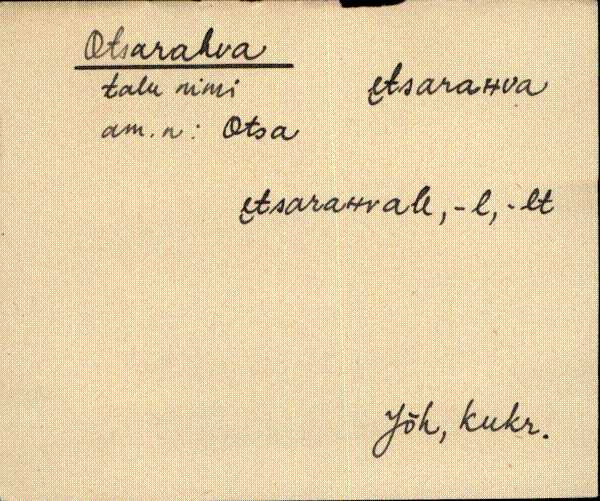 Otsarahva
talu nimi
e̮tsaraʜva
am. n: Otsa
e̮tsaraʜvale, -l, -lt
Jõh, Kukr.